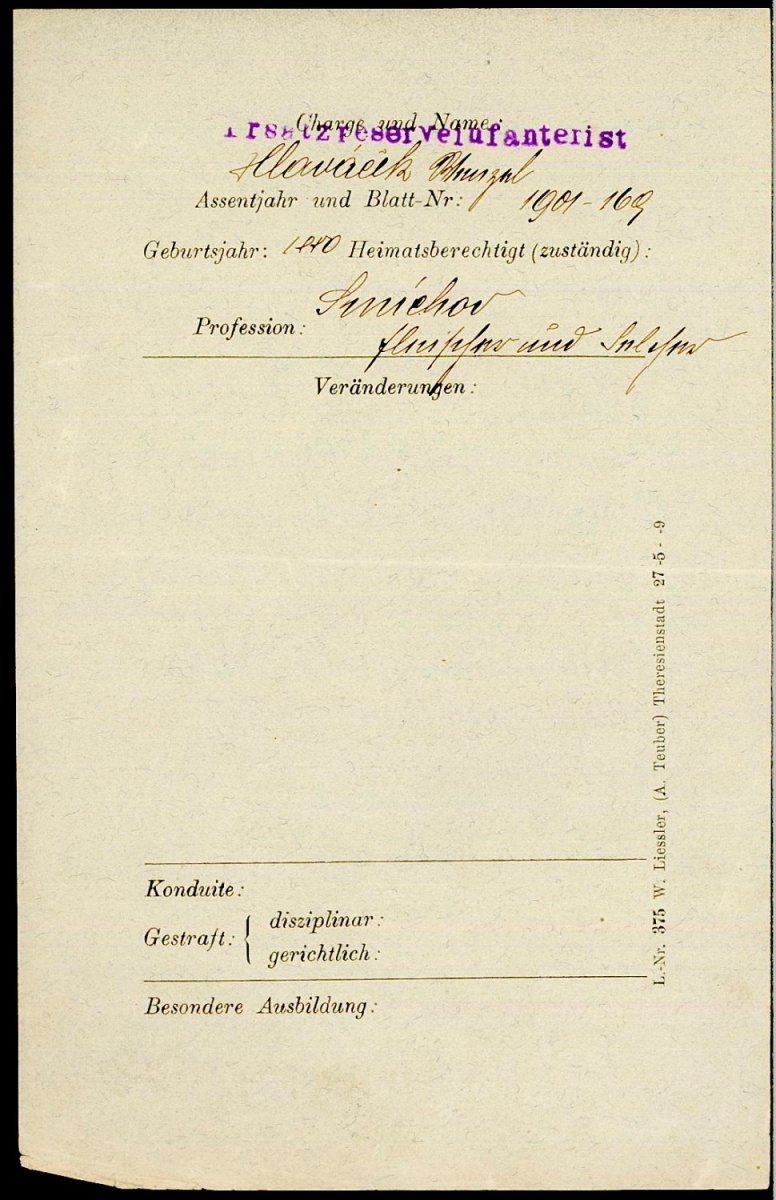 Charge und Name:
Ersatzreserveinfanterist
Hlaváček Wenzel
Assentjahr und Blatt-Nr: 1901-169
Geburtsjahr: 1880 Heimatsberechtigt (zuständig):
Smíchov
Profession:
Fleischer und Selcher
Veränderungen:
Konduite:
Gestraft: { disziplinar:
gerichtlich:
Besondere Ausbildung:
L.-Nr. 375 W. Liessler, (A. Teuber) Theresienstadt 27 -5- -9